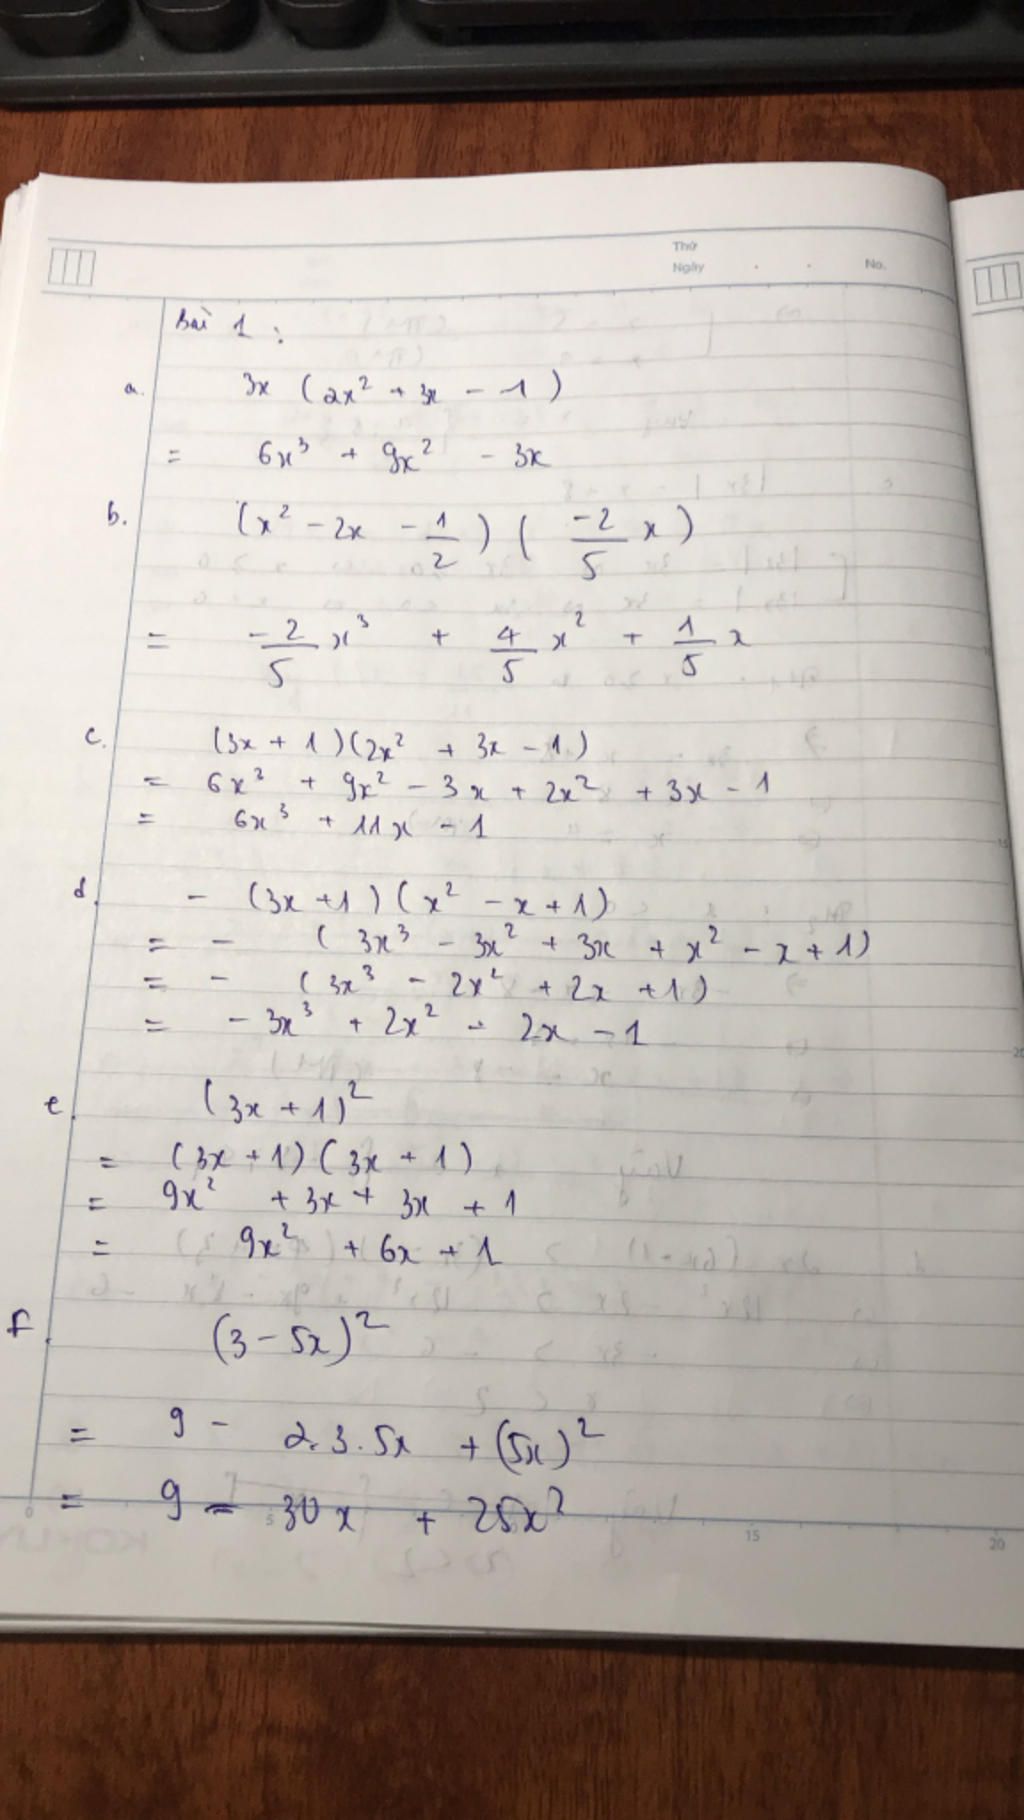 Thứ
Ngày . . No.
Bài 1 :
a. 3x (2x² + 3x - 1)
= 6x³ + 9x² - 3x
b. (x² - 2x - 1/2) (-2/5 x)
= -2/5 x³ + 4/5 x² + 1/5 x
c. (3x + 1)(2x² + 3x - 1)
= 6x³ + 9x² - 3x + 2x² + 3x - 1
= 6x³ + 11x - 1
d. - (3x + 1)(x² - x + 1)
= - (3x³ - 3x² + 3x + x² - x + 1)
= - (3x³ - 2x² + 2x + 1)
= - 3x³ + 2x² - 2x - 1
e. (3x + 1)²
= (3x + 1)(3x + 1)
= 9x² + 3x + 3x + 1
= 9x² + 6x + 1
f. (3 - 5x)²
= 9 - 2.3.5x + (5x)²
= 9 - 30x + 25x²
0 5 15 20